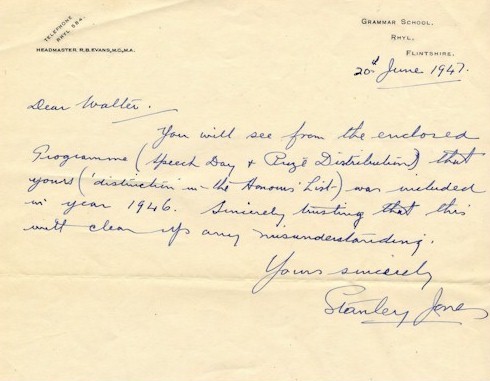 TELEPHONE
RHYL 584.
HEADMASTER, R.B.EVANS, M.C., M.A.
GRAMMAR SCHOOL,
RHYL,
FLINTSHIRE.
20th June 1947.
Dear Walter.
You will see from the enclosed
Programme (Speech Day & Prize Distribution) that
yours ('distinction in the Honours' List) was included
in year 1946. Sincerely trusting that this
will clear up any misunderstanding.
Yours sincerely
Stanley Jones